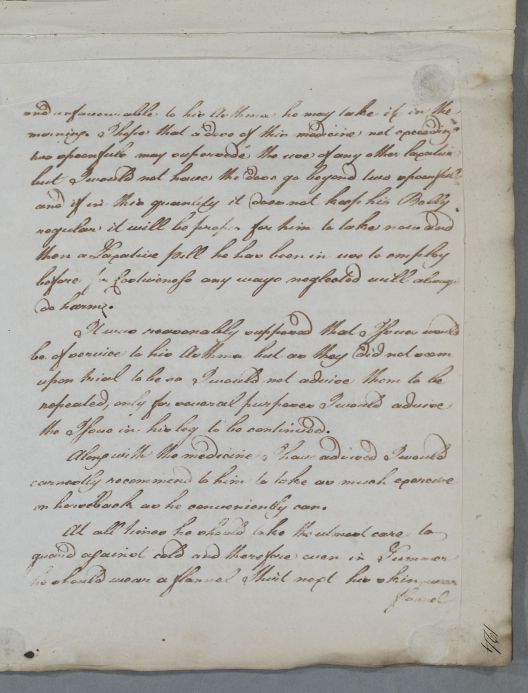 and unfavourable to his Asthma he may take it in the
morning. I hope that a dose of this medicine not exceeding
two spoonfuls may supersede the use of any other laxative
but I would not have the dose go beyond two spoonfuls
and if in this quantity it does not keep his Belly
regular it will be proper for him to take now and
then a Laxative pill he has been in use to employ
before for Costiveness any ways neglected will always
do harm.
It was reasonably supposed that Issues would
be of service to his Asthma but as they did not seem
upon trial to be so I would not advise them to be
repeated, only for several purposes I would advise
the Issue in his leg to be continued.
Along with the medicine I have advised I would
earnestly recommend to him to take as much exercise
on horseback as he conveniently can.
At all times he should take the utmost care to
guard against cold and therefore even in Summer
he should wear a flannel Shirt next his skin
flannel
124